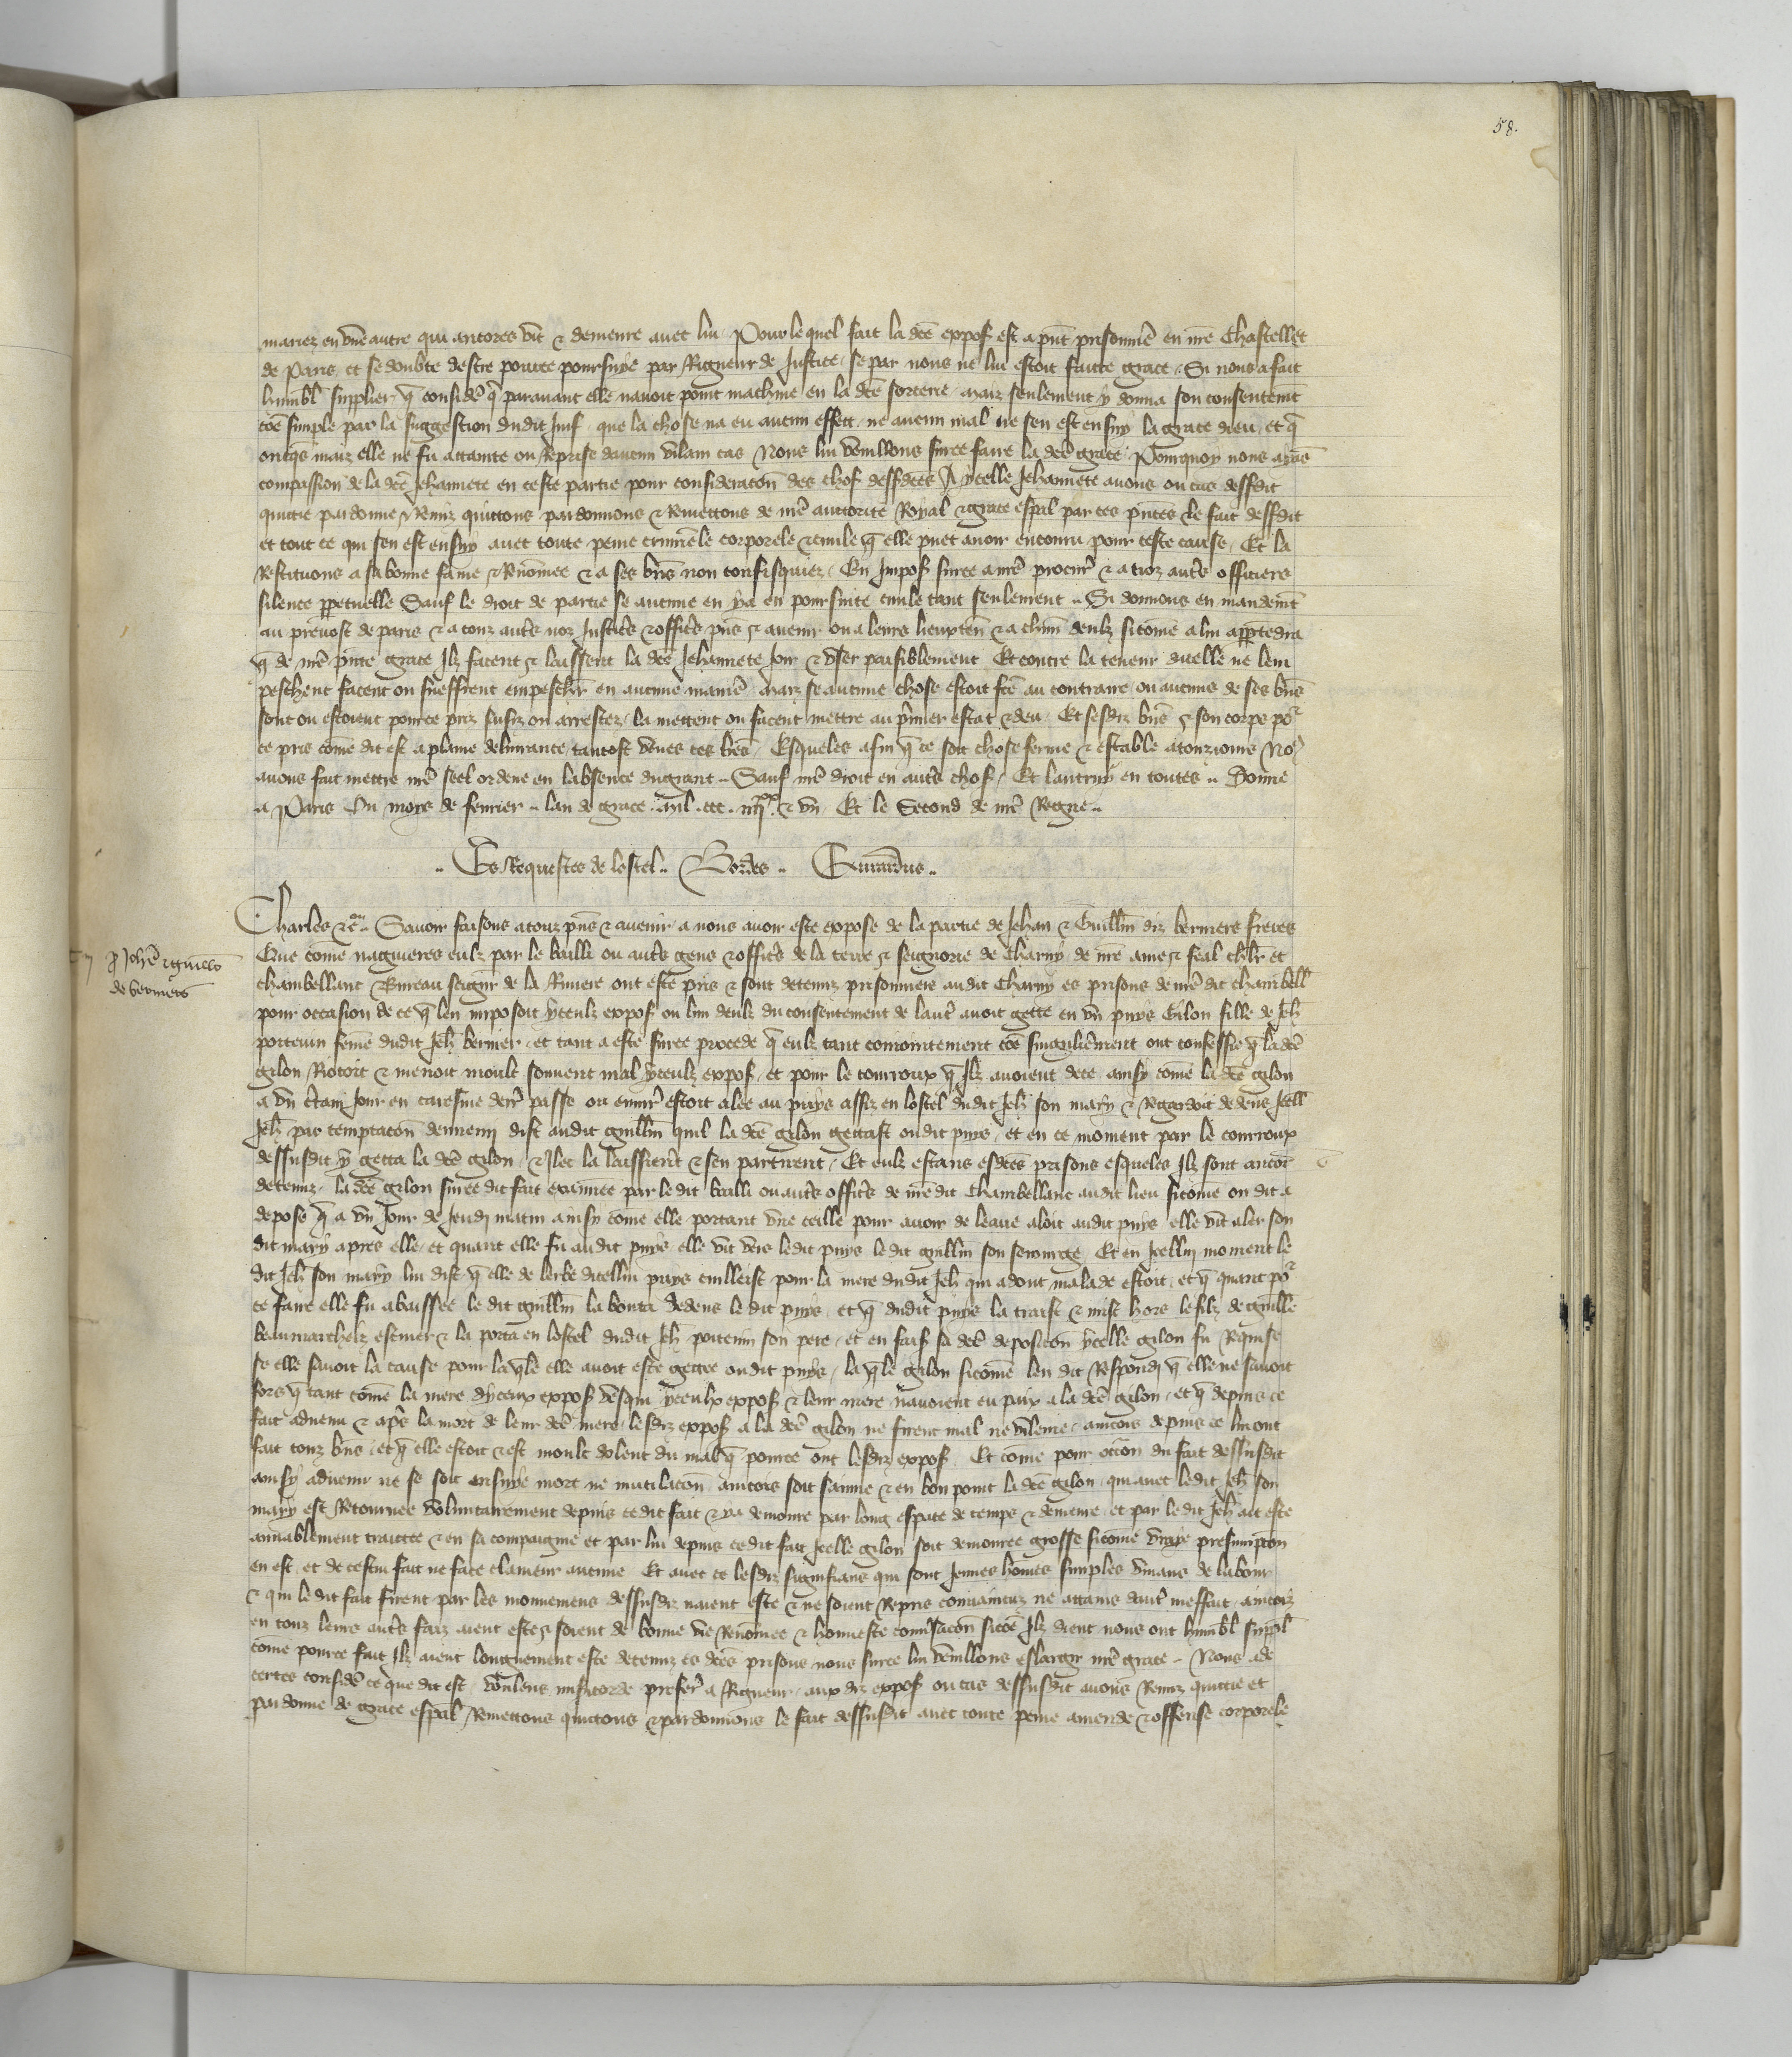 58.
mariez en vne autre qui ancores vit & demeure auec lui Pour lequel fait la dcē expoſ est a pn̄t prisonnie᷑ en nr̄e Chastellet
de Paris et se doubte destre pource poursuye par Rigueur de Justice se par nous ne lui estoit faicte grace Si nous a fait
humbl̄ supplier q̄ conside᷑ q̄ parauant elle nauoit point machine en la dcē sorcerie mais seulement y donna son consentemn̄t
cōe simple par la suggestion dudit Juif que la chose na eu aucun effect ne aucun mal ne sen est ensuy la grace dieu et q̄
oncq̄s maiz elle ne fu attainte ou reprise daucun vilain cas Nous lui veuillons surce faire la dcē grace Pourquoy nous aiās
compassion de la dcē Jehannete en ceste partie pour consideracōn des choſ dessdcēs A ycelle Jehannete auons ou cas dessdit
quictie pardonne Remiz quictons pardonnons & Remettons de nr̄e auctorite Royal & grace esp̄al par ces pn̄tes le fait dessdit
et tout ce qui sen est ensuy auec toute peine crimi̅ele corporele & ciuile q̄ elle puet auoir encouru pour ceste cause Et la
Restituons a sa bonne fame & Renōmee & a ses bn̄s non confisquiez En Imposˉ surce a nr̄e procur᷑ & a touz aut᷑s officiers
silence p̱petuelle Sauf le droit de partie se aucune en ya en poursuite ciuile tant seulement Si donnons en mandemn̄t
au preuost de paris & a touz aut᷑s noz Justic᷑s & offic᷑s pn̄s & auenir ou a leurs lieuxten̄ & a chūn deulz sicōme a lui app̱tēdra
q̄ de nr̄e pn̄te grace Ilz facent & laissent la dcē Jehannete Joir & vser paisiblement Et contre la teneur dicelle ne lem
peschent facent ou sueffrent empesch᷑ en aucune manie᷑ maiz se aucune chose estoit fcē au contraire ou aucuns de ses bn̄s
sont ou estoient pource priz saisiz ou arrestez la mettent ou facent mettre au p̄mier estat & deu Et sesdiz bn̄s & son corps po᷑
ce pris cōme dit est a plaine deliurance tantost veues ces lr̄es Esqueles afin q̄ ce soit chose ferme & estable a touziours No᷒
auons fait mettre nr̄e seel ordene en labsence du grant Sauf nr̄e droit en aut᷑s choſ Et lautruy en toutes Donne
a Paris Ou moys de feurier lan de grace mil ccc iiijˣˣ & vn Et le Second de nr̄e Regne
Es Requestes de lostel Bordes Giuardus
Charles &c̄ Sauoir faisons a touz pn̄s & auenir a nous auoir este expose de la partie de Jehan & Guill̄m diz berniers freres
Que cōme naguieres eulz par le bailli ou aut᷑s gens & offic᷑s de la terre & seignorie de Charny de nr̄e ame & feal chlr̄ et
chambellanc Bureau seign̄r de la Riuiere ont este pris & sont detenuz prisonniers audit Charny es prisons de nr̄e dit chambell̄
pour occasion de ce q̄ len imposoit yceulz expoſ ou lun deulz du consentement de laut᷑ auoit gette en vn puys Gilon fille de Jeh̄
porteuin femē dudit Jeh̄ bernier et tant a este surce procede q̄ eulz tant coniointement cōe singulie᷑ment ont confesse q̄ ladcē
Gilon Riotoit & menoit moult souuent mal yceulz expoſ et pour le courroux q̄ Ilz auoient dece ainsy cōme la dcē gilon
a vn certain Jour en caresme derr̄ passe ou enuir̄ estoit alee au puys assiz en lostel dudit Jeh̄ son mary & Regardoit dedens Icell̄
Jeh̄ par temptacōn dennemy dist audit guill̄m quil la dcē gilon gettast oudit puys et en ce moment par le courroux
dessusdit y getta la dcē gilon & Ilec la laisserent & sen partirent Et eulz estans esdcēs prisons esqueles Ilz sont ancor᷑
detenuz la dcē gilon surce dit fait examinee par le dit bailli ou aut᷑s offic᷑s de nr̄e dit Chambellanc audit lieu sicōme on dit a
depose q̄ a vn Jour de Jeudi matin ainsy cōme elle portant vne ceille pour auoir de leaue aloit audit puys elle vit aler son
dit mary apres elle et quant elle fu audit puys elle vit vers ledit puys le dit guill̄m son serourge Et en Icellui moment le
dit Jeh̄ son mary lui dist q̄ elle de lerbe dicellui puys cuillerst pour la mere dudit Jeh̄ qui adont malade estoit et q̄ quant po᷑
ce faire elle fu abaissee le dit guill̄m la bouta dedens le dit puys et q̄ dudit puys la traist & mist hors lefilz de guill̄e
beaumarchetz escuier & la porta en lostel dudit Jeh̄ poiteuin son pere et en faisˉ sa dcē deposicōn ycelle gilon fu Requise
se elle sauoit la cause pour laq̄le elle auoit este gettee oudit puys laq̄le gilon sicōme len dit Respondi q̄ elle ne sauoit
fors q̄ tant cōme la mere dyceux expoſ vesqui yceulx expoſ & leur mere nauoient eu paix a la dcē gilon et q̄ depuis ce
fait aduenu & ap᷑s la mort de leur dcē mere lesdiz expoſ a la dcē gilon ne firent mal ne vilenie aincois depuis ce lui ont
fait touz bn̄s et q̄ elle estoit & est moult dolent du mal q̄ pource ont lesdiz expoſ Et cōme pour occōn du fait dessusdit
ainsy aduenu ne se soit ensuye mort ne mutilacōn aincois soit sainne & en bon point la dcē gilon qui auec ledit Jeh̄ son
mary est Retournee voluntairement depuis ce dit fait & ya demoure par long espace de temps & demeure et par le dit Jeh̄ ait este
amiablement traictee & en sa compaignie et par lui depuis ce dit fait Icelle gilon soit demouree grosse sicōme vraye presumpcōn
en est et de cestui fait ne face clameur aucune Et auec ce lesdiz supplians qui sont Jeunes hōmes simples viuans de labour
& qui le dit fait firent par les mouuemens dessusdiz naient este & ne soient Repris conuaincuz ne attains dautre meffait aincoiz
en touz leurs aut᷑s faiz aient este & soient de bonne vie Renōmee & honneste conu᷑sacōn sicōe Ilz dient nous ont humbl̄ suppl̄
cōme pource fait Ilz aient longuement este detenuz es dcēs prisons nous surce lui veuillons eslargir nr̄e grace Nous ade
certes conside᷑ ce que dit est Voulens misericorde prefer᷑ a Rigueur aux diz expoſ ou cas dessusdit auons Remiz quictie et
pardonne de grace esp̄al Remettons quictons & pardonnons le fait dessusdit auec toute peine amende & offense corporele
p̱ Joh̄e & guill̄o
de berniers